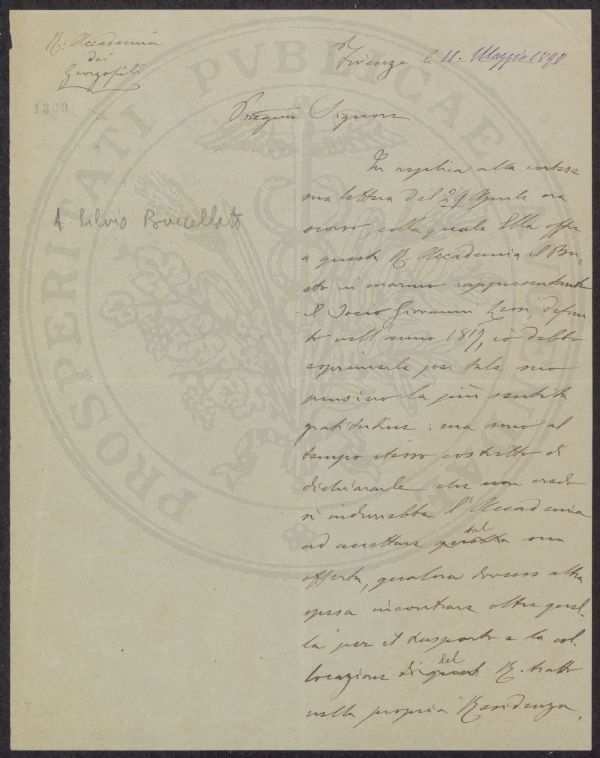 R: Accademia
dei
Georgofili
1399
Firenze li 11. Maggio 1898
A Silvio Buccellato
Pregio Signore
In replica alla cortese
ma lettera del 29 Aprile ora
scorso, colla quale Ella offre
a questa R. Accademia il Bu-
sto in marmo rappresentante
il Socio Giovanni Lessi, defun
to nell'anno 1817, io debbo
esprimerle per tale suo
pensiero la più sentita
gratitudine: ma sono al
tempo stesso costretto di
dichiararle che non credo
si indurrebbe l'Accademia
ad accettare tal sua
offerta, qualora dovesse altra
spesa incontrare oltre quel-
la per il trasporto e la col-
locazione del R. tratto
nella propria Residenza,
PROSPERITATI PVBLICAE